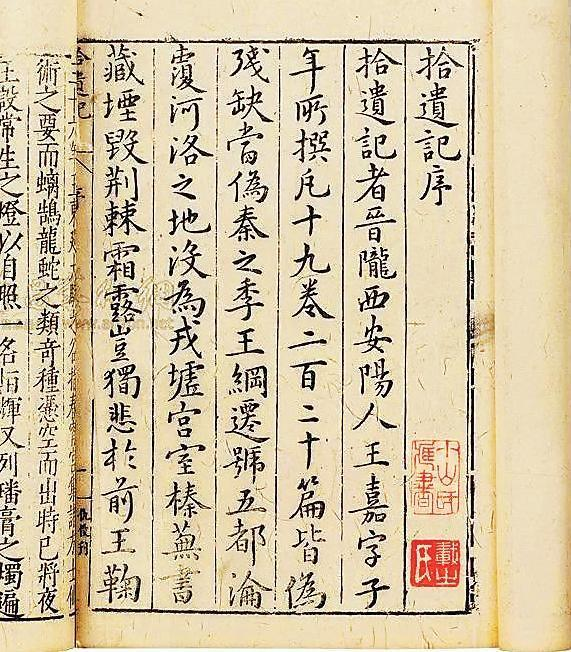 拾遺記序
拾遺記者晉隴西安陽人王嘉字子
年所撰凡十九卷二百二十篇皆為
殘缺當偽秦之季王綱遷號五都淪
覆河洛之地沒為戎墟宮室榛蕪書
藏堙毀荆棘霜露豈獨悲於前王鞠
拾遺記
術之要而螭鵠龍蛇之類奇種憑空而出時已將夜
王設常生之燈以自照一名恒輝又列璠膏之燭遍